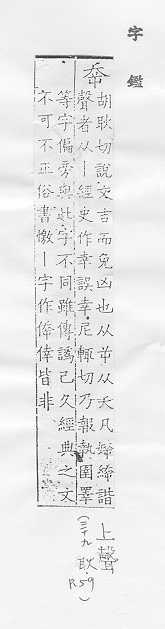 字鑑
𡴘
胡耿切說文吉而免凶也从屰从夭凡婞緈諧
聲者从丨經史作幸誤㚔尼輒切乃報執圉睪
等字偏旁與此字不同雖傳譌已久經典之文
不可不正俗書憿丨字作倖皆非
上聲
(三十九 耿 P.59)